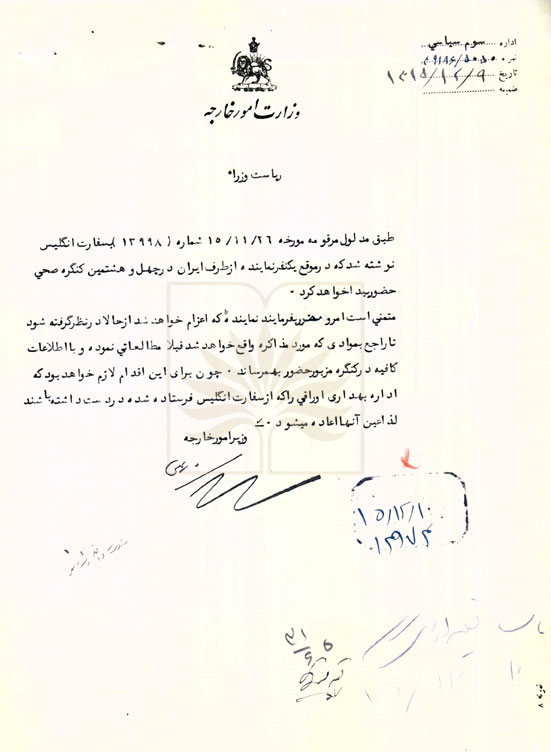 اداره سوم سیاسي
نمره ۳۹۱۸۶/۵۰۵۰
تاریخ ۱۳۱۵/۱۲/۹
ضمیمه
وزارت امور خارجه
ریاست وزراء
طبق مدلول مرقومه مورخه ۱۵/۱۱/۲۶ شماره ( ۱۳۹۹۸ ) بسفارت انگلیس
نوشته شد که در موقع یکنفر نماینده از طرف ایران در چهل و هشتمین کنگره صحي
حضور پیدا خواهد کرد ۰
متمني است امر و مقرر بفرمایند نمایندهٔ که اعزام خواهند شد از حالا در نظر گرفته شود
تا راجع بموادی که مورد مذاکره واقع خواهد شد قبلا مطالعاتي نموده و با اطلاعات
کافیه در کنگره مزبور حضور بهمرساند ۰ چون برای این اقدام لازم خواهد بود که
اداره بهداری اوراقي را که از سفارت انگلیس فرستاده شده در دست داشته باشند
لذا عین آنها اعاده میشود ۰
وزیر امور خارجه
۱۵/۱۲/۱۰
۱۳۹۷۴
نمونه ۸